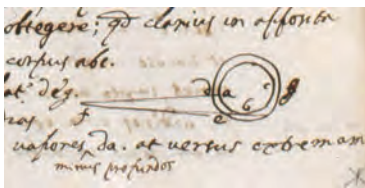 obtegere; qd clarius in apposita
corpus abc.
at: deg.
d a c g
b
f e
vapores da. at versus extremam
minus profundos